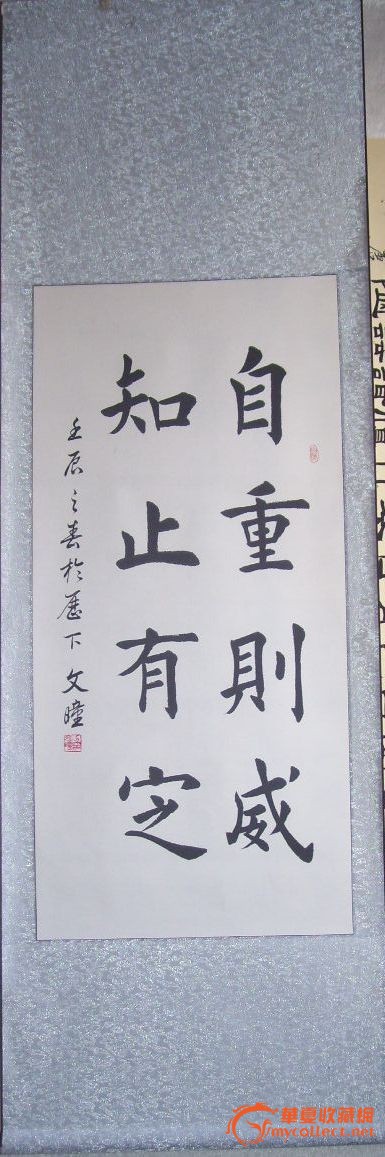 自重則威
知止有定
壬辰之春於歷下文瞳
華夏收藏網
mycollect.net